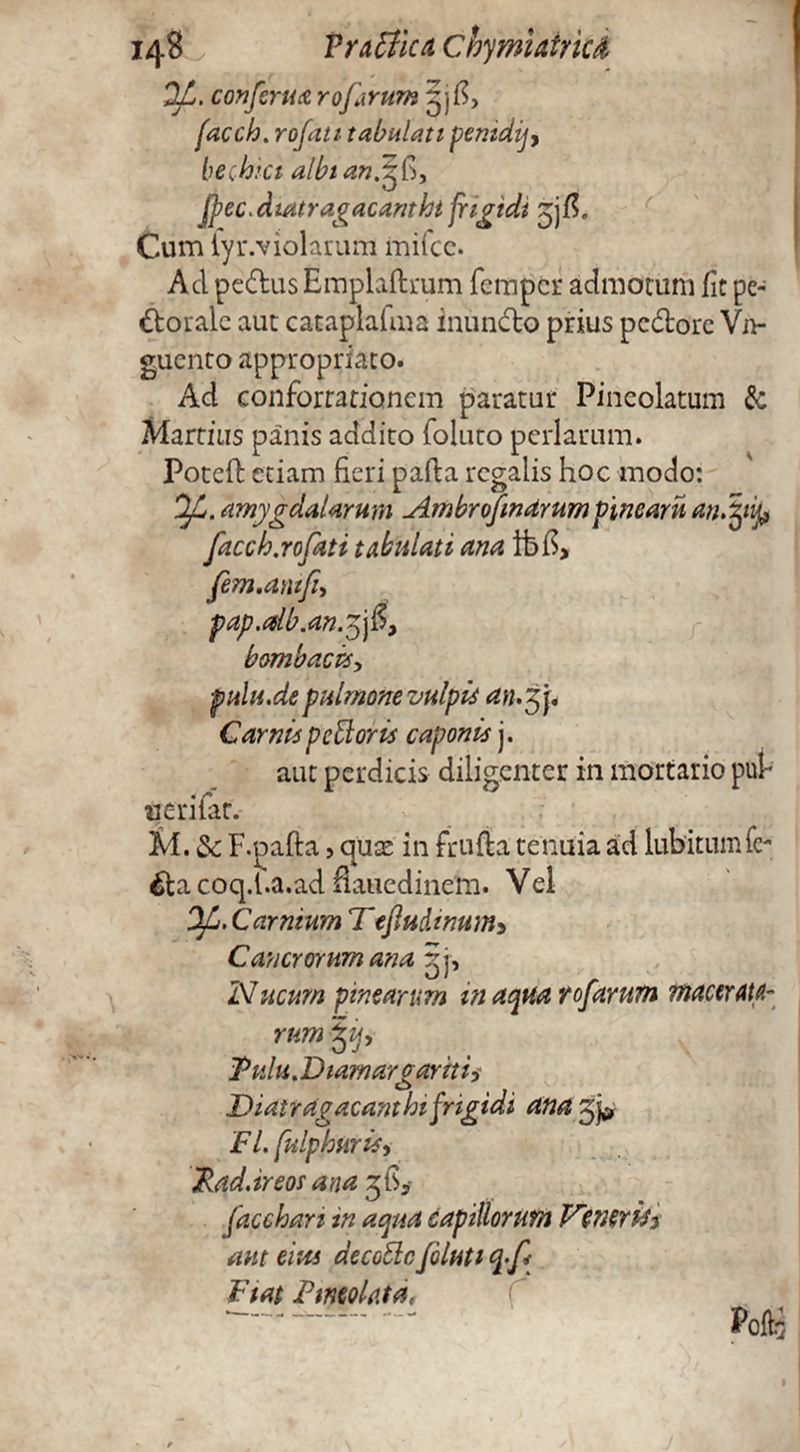 148 Practica Chymiatrica
℞. conseruæ rosarum ℥jß,
sacch. rosati tabulati penidij,
bechici albi an.℥ß,
spec.diatragacanthi frigidi ʒjß.
Cum syr.violarum misce.
Ad pectus Emplastrum semper admotum sit pe-
ctorale aut cataplasma inuncto prius pectore Vn-
guento appropriato.
Ad confortationem paratur Pineolatum &
Martius panis addito soluto perlarum.
Potest etiam fieri pasta regalis hoc modo:
℞. amygdalarum Ambrosinarum pinearū an.℥iij,
sacch.rosati tabulati ana ℔ß,
sem.anisi,
pap.alb.an.ʒjß,
bombacis,
pulu.de pulmone vulpis an.ʒj.
Carnis pectoris caponis j.
aut perdicis diligenter in mortario pul-
uerisat.
M. & F.pasta, quæ in frusta tenuia ad lubitum se-
cta coq.s.a.ad flauedinem. Vel
℞. Carnium Testudinum,
Cancrorum ana ℥j,
Nucum pinearum in aqua rosarum macerata-
rum ℥ij,
Pulu.Diamargariti,
Diatragacanthi frigidi ana ʒj,
Fl. sulphuris,
Rad.ireos ana ʒß,
sacchari in aqua capillorum Veneris,
aut eius decocto soluti q.s.
Fiat Pineolata.
Posteà